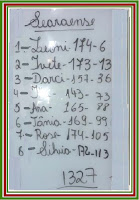 Searaense
1-Leoni 174-6
2-Ivete-173-13
3-Darci-157-36
4- 143-73
5-Ana-165-88
6-Tânia-169-99
7-Rose-174-105
8-Silvia-172-113
1327